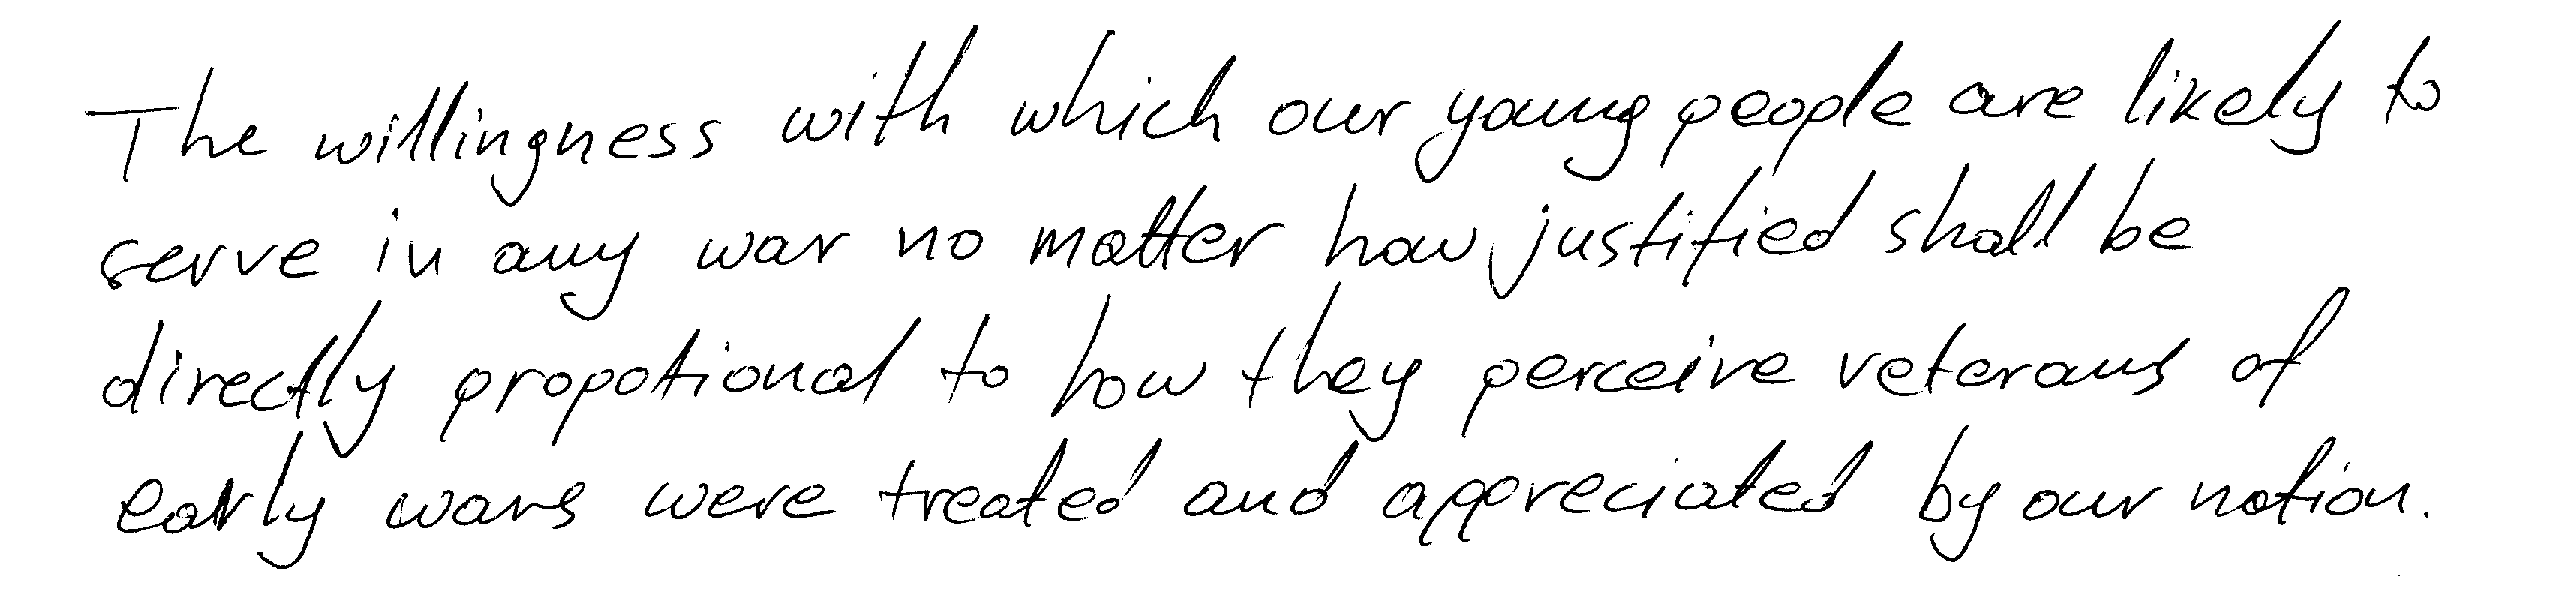 The willingness with which our young people are likely to
serve in any war no matter how justified shall be
directly propotional to how they perceive veterans of
early wars were treated and appreciated by our nation.